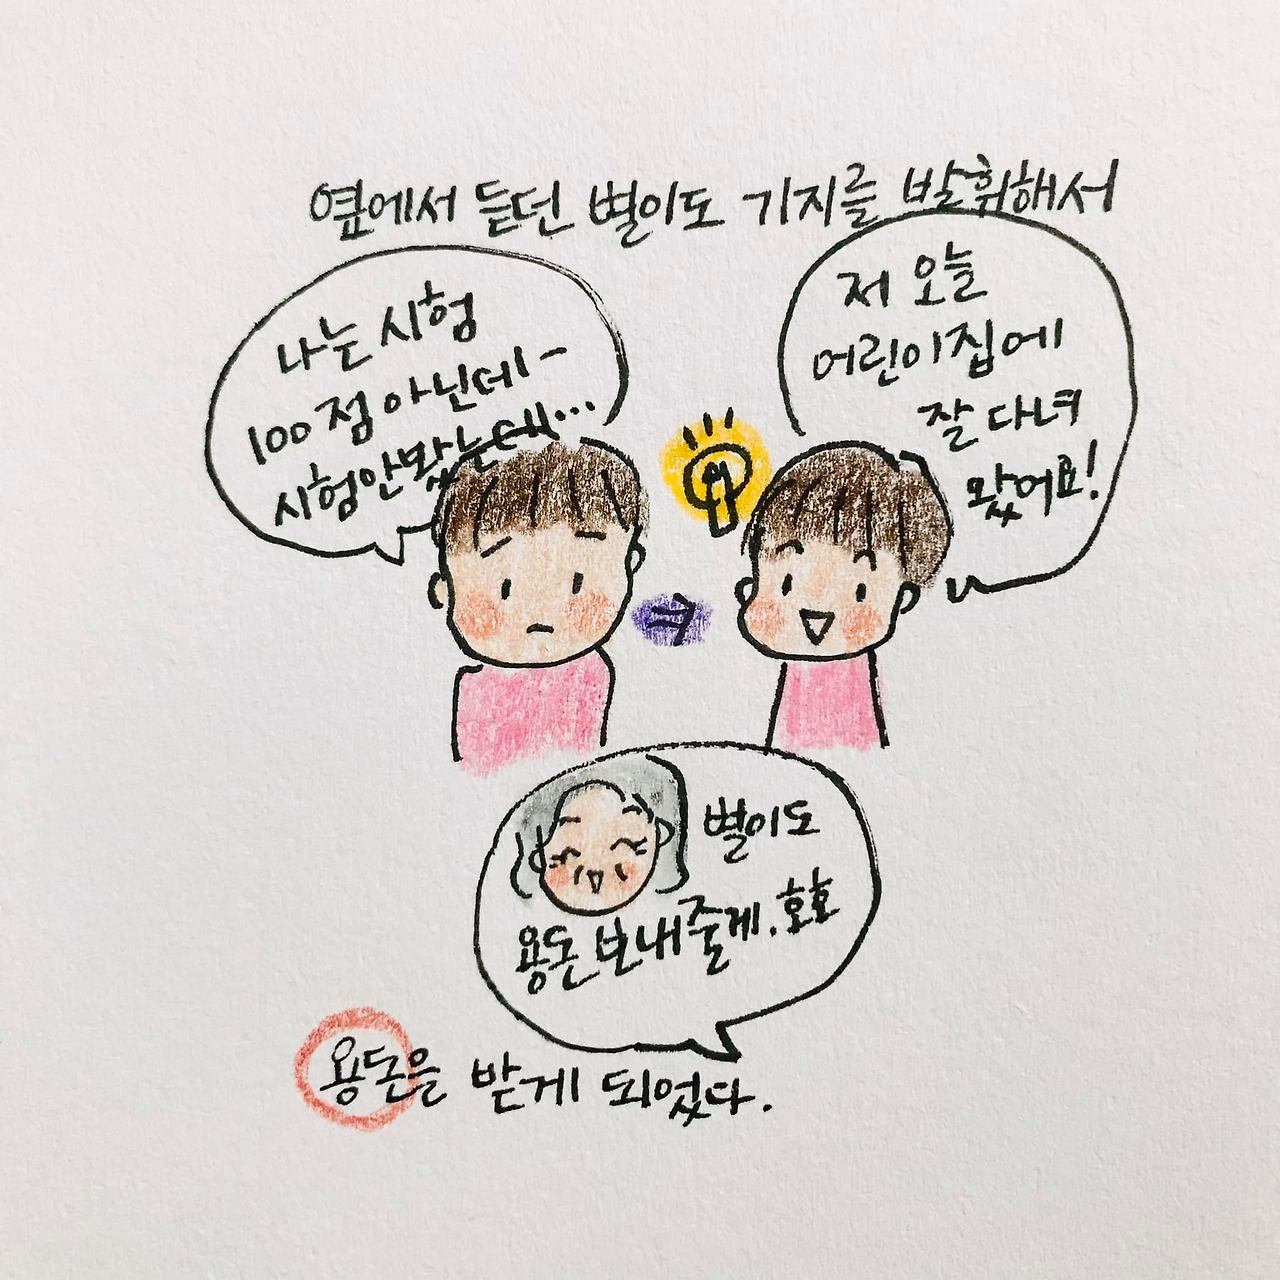 옆에서 듣던 별이도 기지를 발휘해서
나는 시험
100점 아닌데-
시험안봤는데...
저 오늘
어린이집에
잘 다녀
왔어요!
별이도
용돈 보내줄게. 호호
용돈을 받게 되었다.